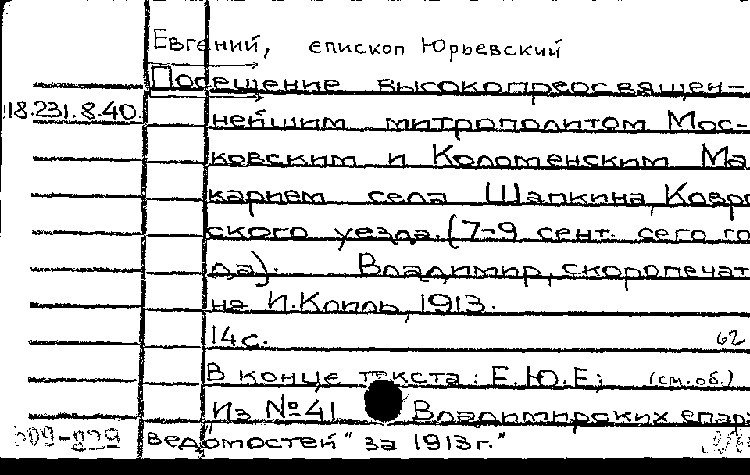 Евгений, епископ Юрьевский
Посещение высокопреосвящен-
18.231.8.40. нейшим митрополитом Мос-
ковским и Коломенским Ма
карием села Шапкина, Ковро
ского уезда. (7-9 сент. сего го
да). Владимир, скоропечат
на И. Коиль, 1913.
14 с. 62
В конце текста: Е.Ю.Е; (см. об.)
Из №41 Владимирских епар
ведомостей" за 1913г."